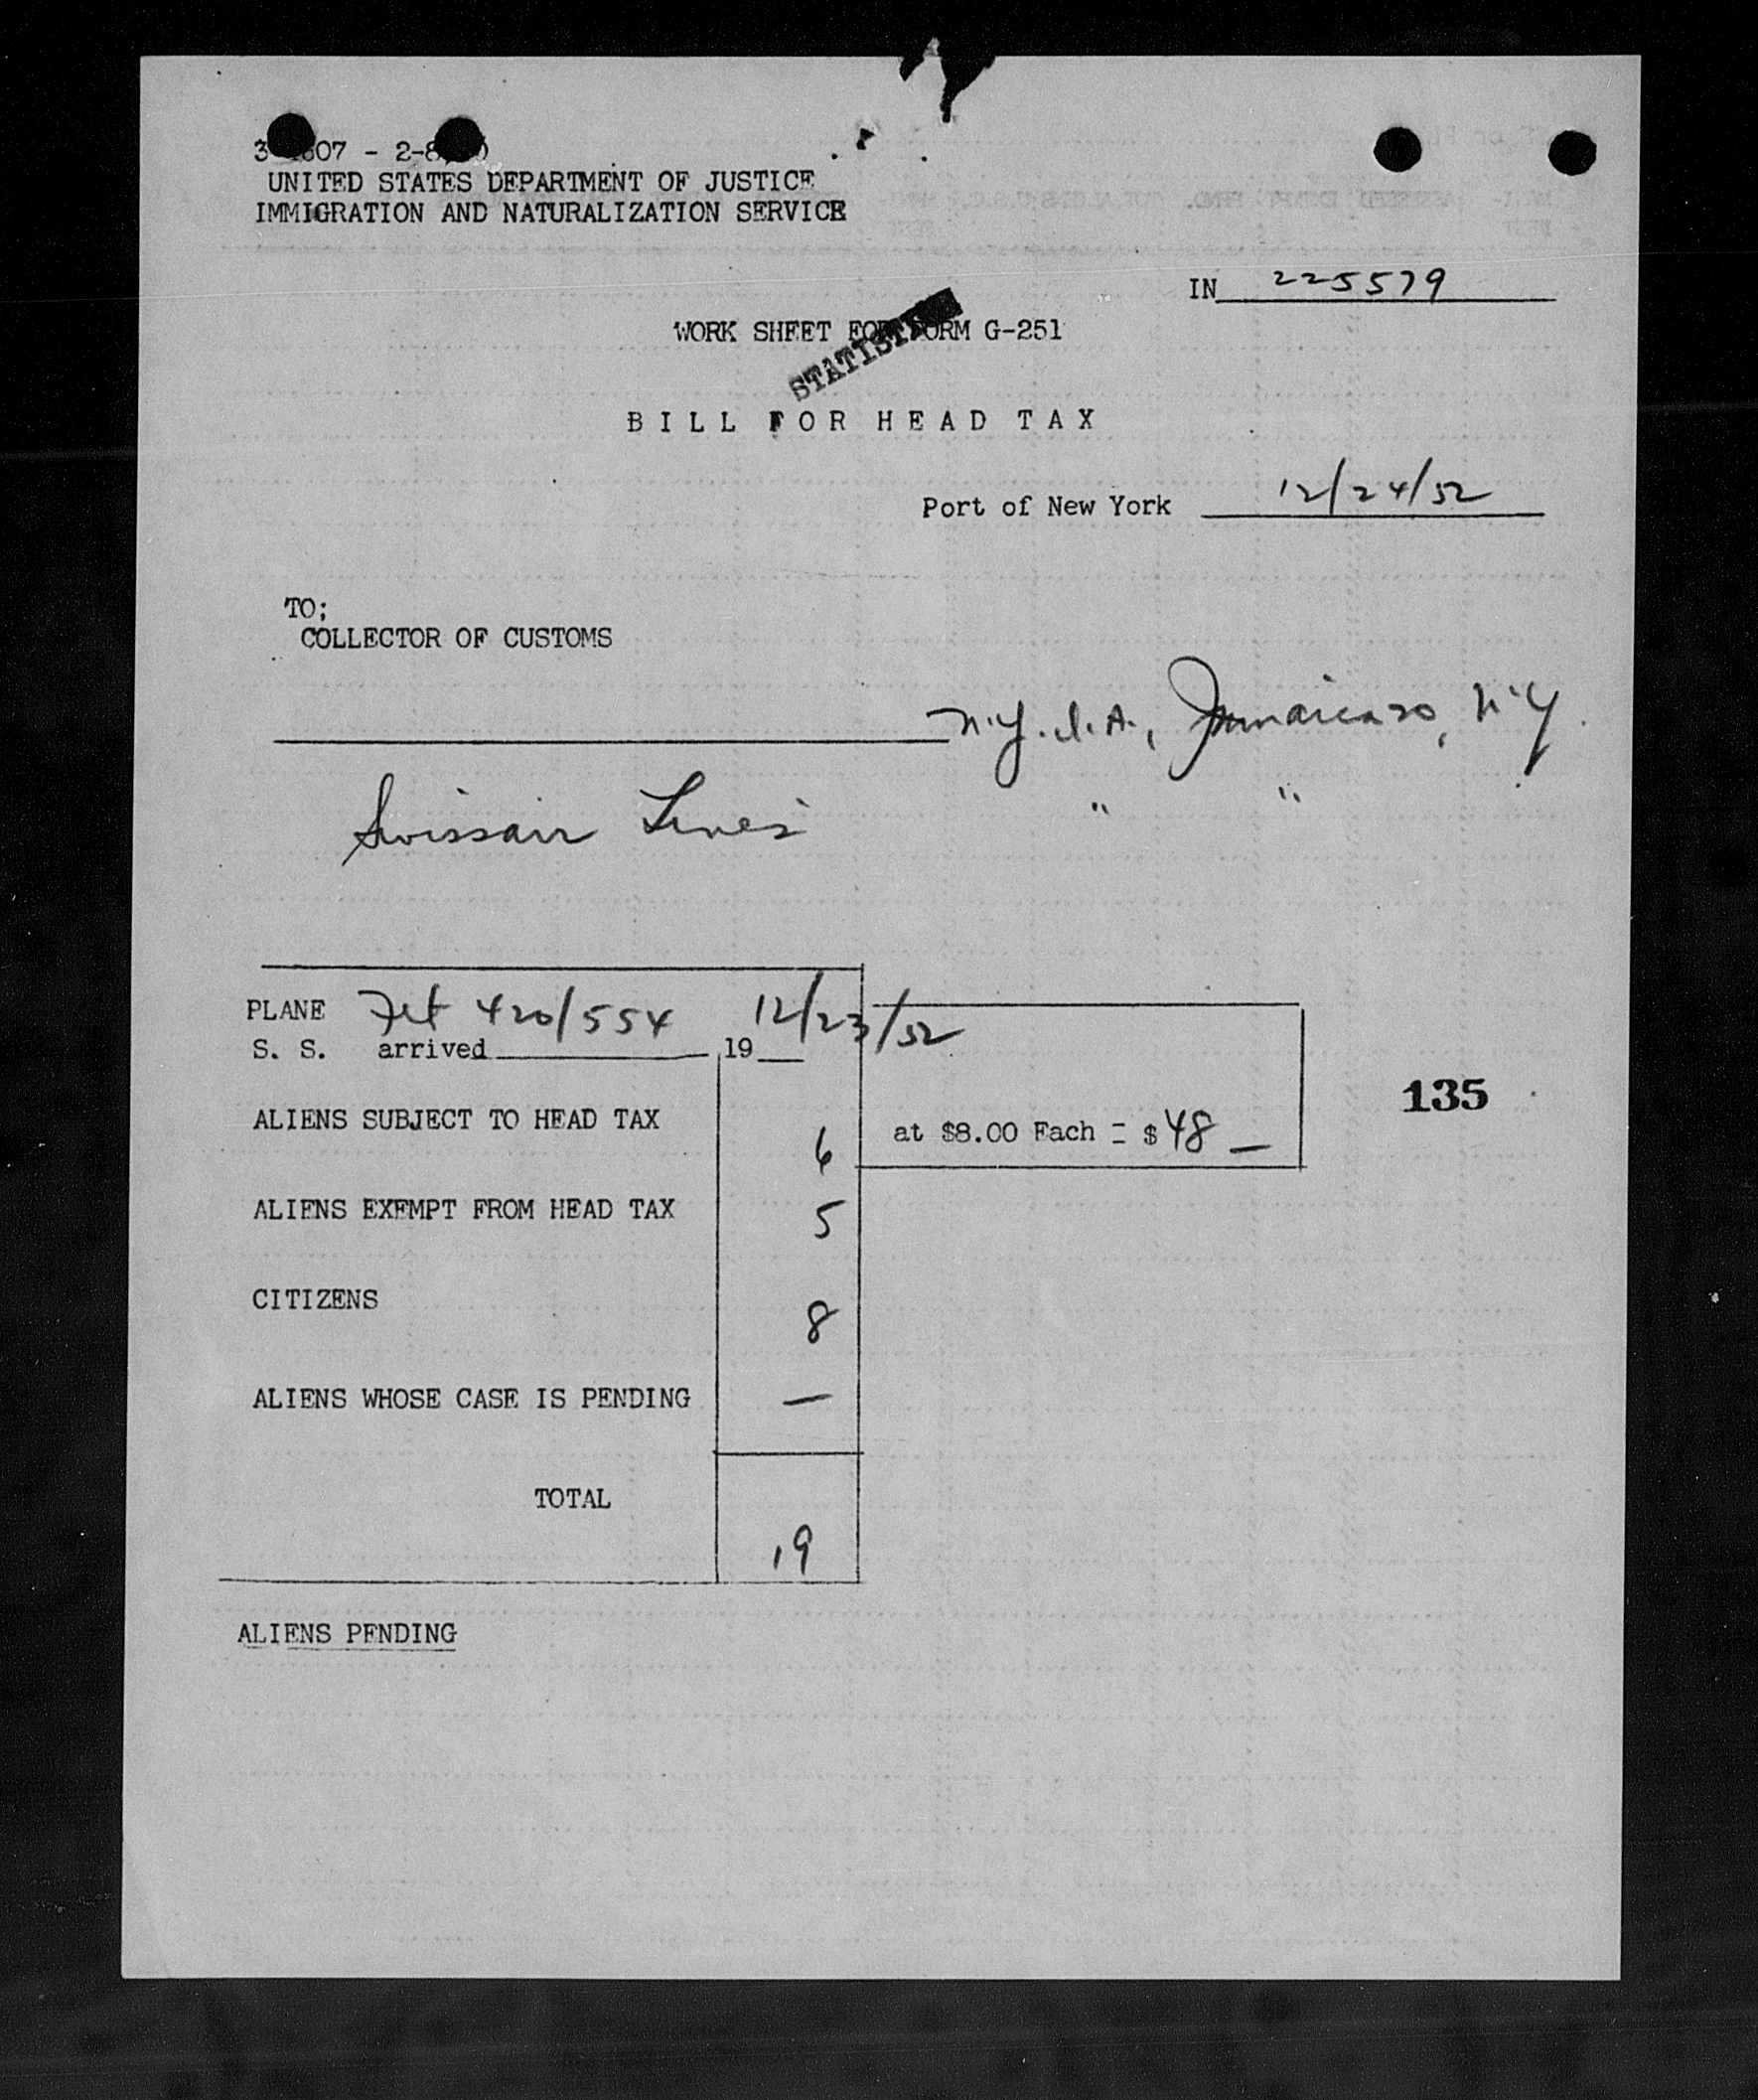 UNITED STATES DEPARTMENT OF JUSTICE
IMMIGRATION AND NATURALIZATION SERVICE
IN 225579
WORK SHEET FOR FORM G-251
STATISTICS
BILL FOR HEAD TAX
Port of New York 12/24/52
TO;
COLLECTOR OF CUSTOMS
N.Y.I.A., Jamaica 30, N.Y.
Swissair Lines " "
PLANE Flt 420/554 12/23/52
S. S. arrived , 19
ALIENS SUBJECT TO HEAD TAX 6 at $8.00 Each = $ 48 —
135
ALIENS EXEMPT FROM HEAD TAX 5
CITIZENS 8
ALIENS WHOSE CASE IS PENDING —
TOTAL 19
ALIENS PENDING